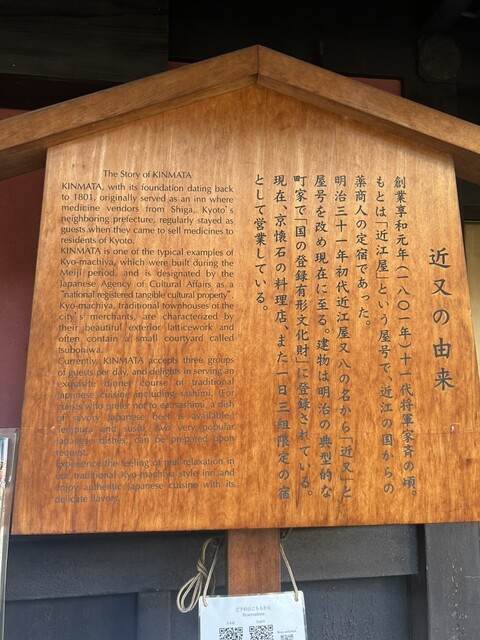 The Story of KINMATA
KINMATA, with its foundation dating back
to 1801, originally served as an inn where
medicine vendors from Shiga, Kyoto's
neighboring prefecture, regularly stayed as
guests when they came to sell medicines to
residents of Kyoto.
KINMATA is one of the typical examples of
Kyo-machiya, which were built during the
Meiji period, and is designated by the
Japanese Agency of Cultural Affairs as a
"national registered tangible cultural property".
Kyo-machiya, traditional townhouses of the
city's merchants, are characterized by
their beautiful exterior latticework and
often contain a small courtyard called
tsuboniwa.
Currently, KINMATA accepts three groups
of guests per day, and delights in serving an
exquisite dinner course of traditional
Japanese cuisine including sashimi. (For
guests who prefer not to eat sashimi, a dish
of savory Japanese beef is available.)
Tempura and sushi, two very popular
Japanese dishes, can be prepared upon
request.
Experience the feeling of real relaxation in
our traditional Kyo-machiya style inn and
enjoy authentic Japanese cuisine with its
delicate flavors.
近又の由来
創業享和元年(一八〇一年)十一代将軍家斉の頃。
もとは「近江屋」という屋号で、近江の国からの
薬商人の定宿であった。
明治三十一年初代近江屋又八の名から「近又」と
屋号を改め現在に至る。建物は明治の典型的な
町家で「国の登録有形文化財」に登録されている。
現在、京懐石の料理店、また一日三組限定の宿
として営業している。
ご予約はこちらから